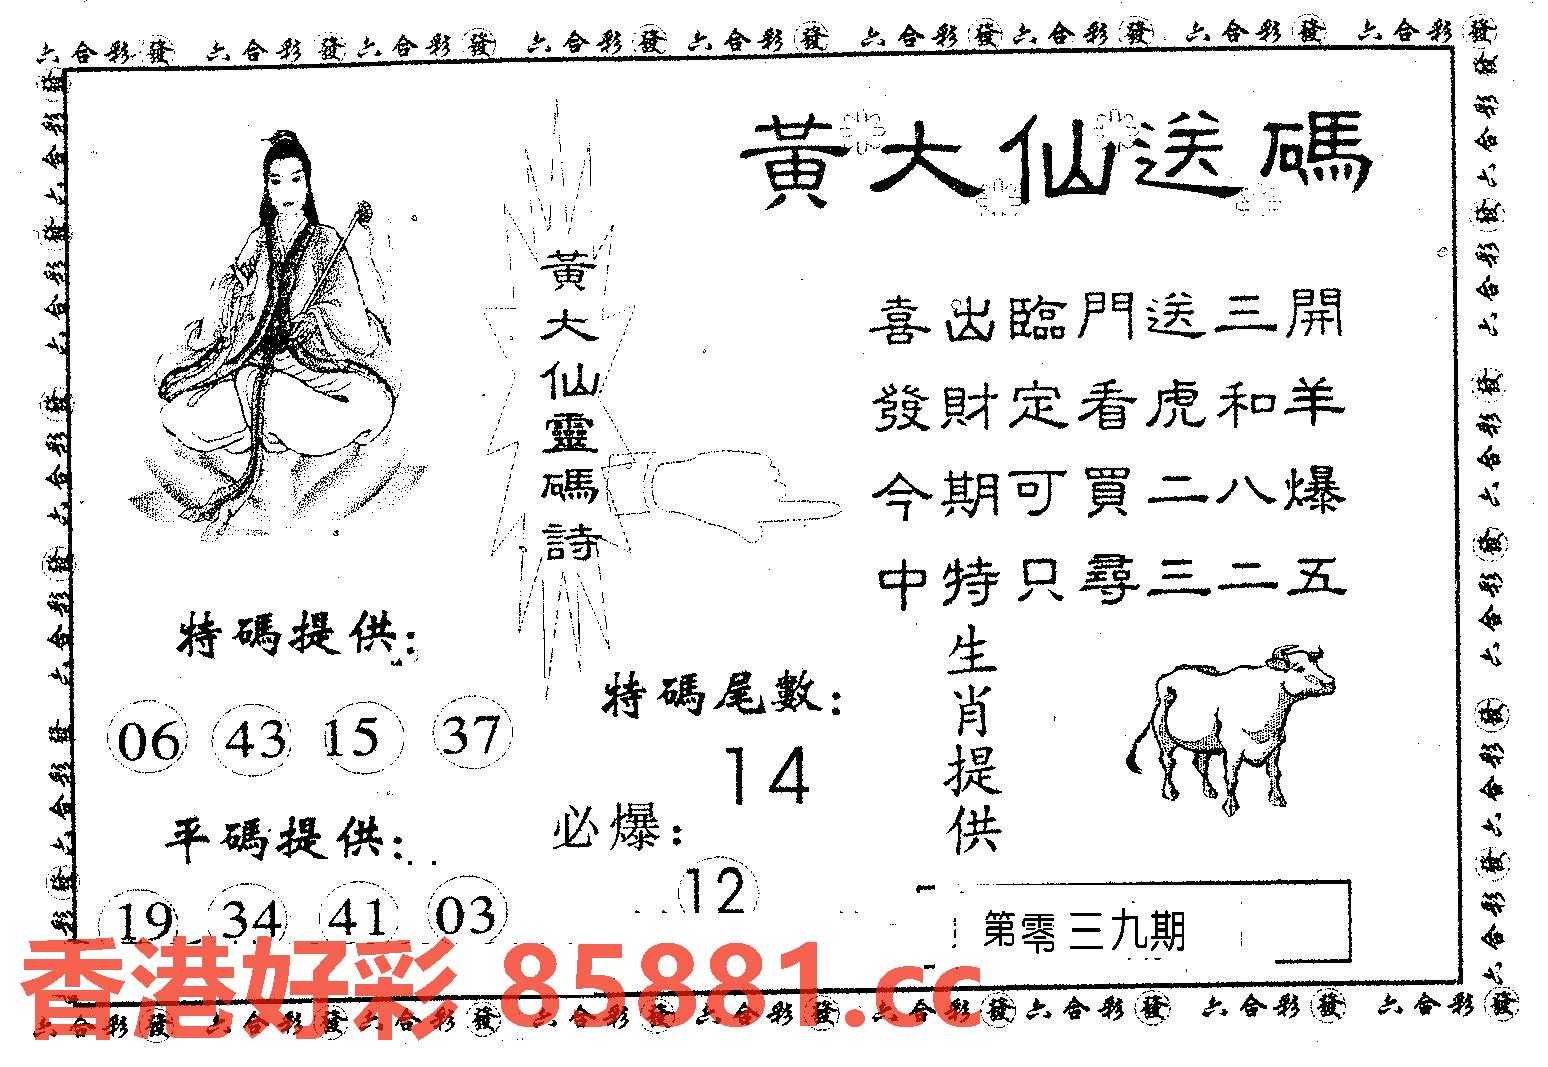 六合彩發 六合彩發 六合彩發 六合彩發 六合彩發 六合彩發 六合彩發 六合彩發 六合彩發
黃大仙送碼
黃大仙靈碼詩
喜出臨門送三開
發財定看虎和羊
今期可買二八爆
中特只尋三二五
特碼提供:
06 43 15 37
平碼提供:
19 34 41 03
特碼尾數:
14
必爆:
12
生肖提供
第零三九期
香港好彩 85881.cc
六合彩發 六合彩發 六合彩發 六合彩發 六合彩發 六合彩發 六合彩發 六合彩發 六合彩發